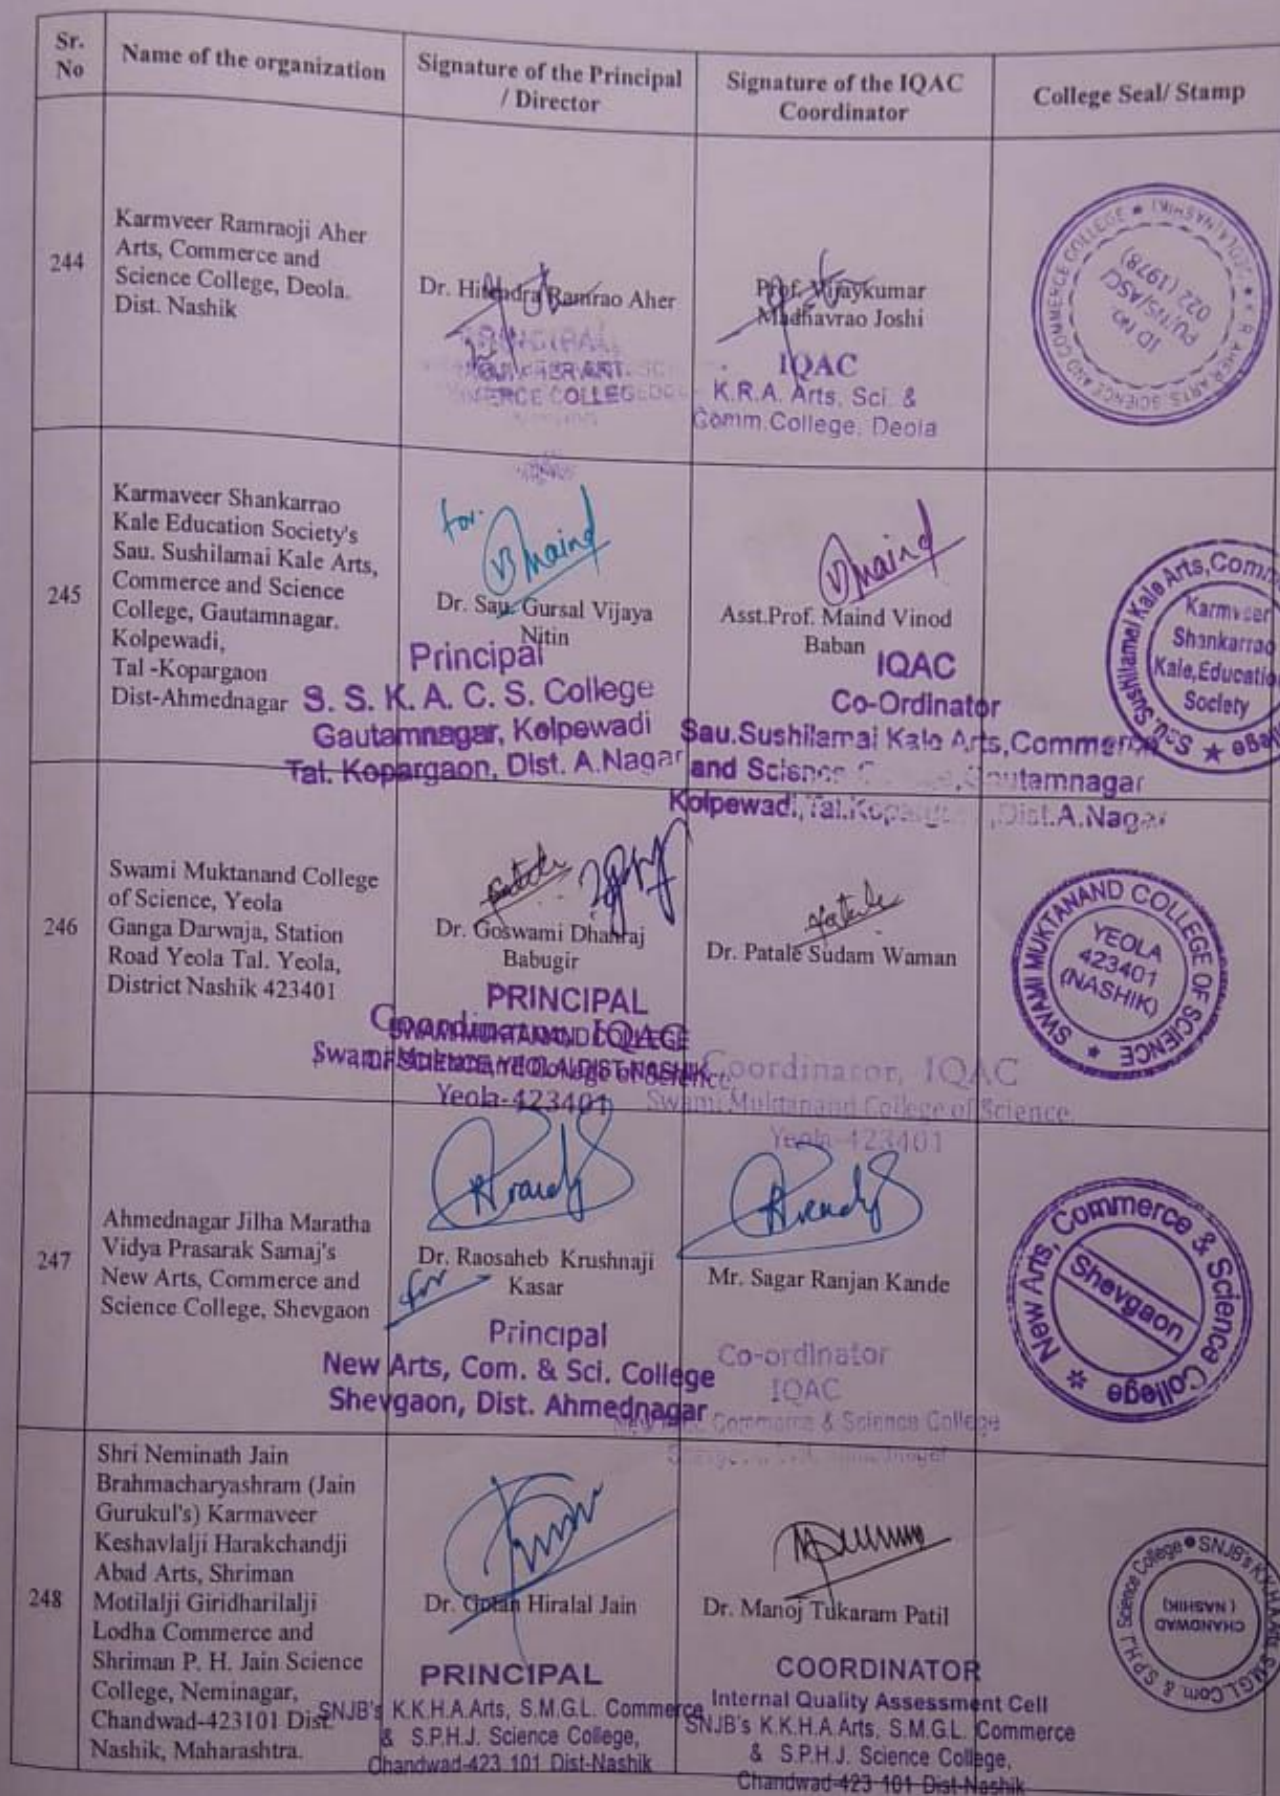 Sr.
No
Name of the organization
Signature of the Principal
/ Director
Signature of the IQAC
Coordinator
College Seal/ Stamp
244
Karmveer Ramraoji Aher
Arts, Commerce and
Science College, Deola.
Dist. Nashik
Dr. Hitendra Ramrao Aher
PRINCIPAL,
AHER ART. SC
COLLEGE
Prof. Vijaykumar
Madhavrao Joshi
IQAC
K.R.A. Arts, Sci. &
Comm.College, Deola
K. R. AHER ARTS, SCIENCE AND COMMERCE COLLEGE
ID No.
PU/NS/ASC/
022 (1978)
245
Karmaveer Shankarrao
Kale Education Society's
Sau. Sushilamai Kale Arts,
Commerce and Science
College, Gautamnagar.
Kolpewadi,
Tal -Kopargaon
Dist-Ahmednagar
for.
VBmaind
Dr. Sau. Gursal Vijaya
Nitin
Principal
S. S. K. A. C. S. College
Gautamnagar, Kolpewadi
Tal. Kopargaon, Dist. A.Nagar
Vmaind
Asst.Prof. Maind Vinod
Baban
IQAC
Co-Ordinator
Sau.Sushilamai Kale Arts,Commerce
and Science Gautamnagar
Kolpewadi,Tal. ,Dist.A.Nagar
Sau. Sushilamai Kale Arts,Comm
Karmveer
Shankarrao
Kale,Educatio
Society
246
Swami Muktanand College
of Science, Yeola
Ganga Darwaja, Station
Road Yeola Tal. Yeola,
District Nashik 423401
Dr. Goswami Dhanraj
Babugir
PRINCIPAL
SWAMI MUKTANAND COLLEGE
OF SCIENCE, YEOLA DIST-NASHIK
Coordinator, IQAC
Swami Muktanand College of Science,
Yeola-423401
Patale
Dr. Patale Sudam Waman
Coordinator, IQAC
Swami Muktanand College of Science,
Yeola-423401
SWAMI MUKTANAND COLLEGE OF SCIENCE
YEOLA
423401
(NASHIK)
247
Ahmednagar Jilha Maratha
Vidya Prasarak Samaj's
New Arts, Commerce and
Science College, Shevgaon
Dr. Raosaheb Krushnaji
Kasar
for
Principal
New Arts, Com. & Sci. College
Shevgaon, Dist. Ahmednagar
Mr. Sagar Ranjan Kande
Co-ordinator
IQAC
New Arts, Commerce & Science College
New Arts, Commerce & Science College
Shevgaon
248
Shri Neminath Jain
Brahmacharyashram (Jain
Gurukul's) Karmaveer
Keshavlalji Harakchandji
Abad Arts, Shriman
Motilalji Giridharilalji
Lodha Commerce and
Shriman P. H. Jain Science
College, Neminagar,
Chandwad-423101 Dist.
Nashik, Maharashtra.
Dr. Gotan Hiralal Jain
PRINCIPAL
SNJB's K.K.H.A.Arts, S.M.G.L. Commerce
& S.P.H.J. Science College,
Chandwad-423 101 Dist-Nashik
Dr. Manoj Tukaram Patil
COORDINATOR
Internal Quality Assessment Cell
SNJB's K.K.H.A.Arts, S.M.G.L. Commerce
& S.P.H.J. Science College,
Chandwad-423 101 Dist-Nashik
SNJB's K.K.H.A.Arts, S.M.G.L.Com. & S.P.H.J. Science College
CHANDWAD
( NASHIK)